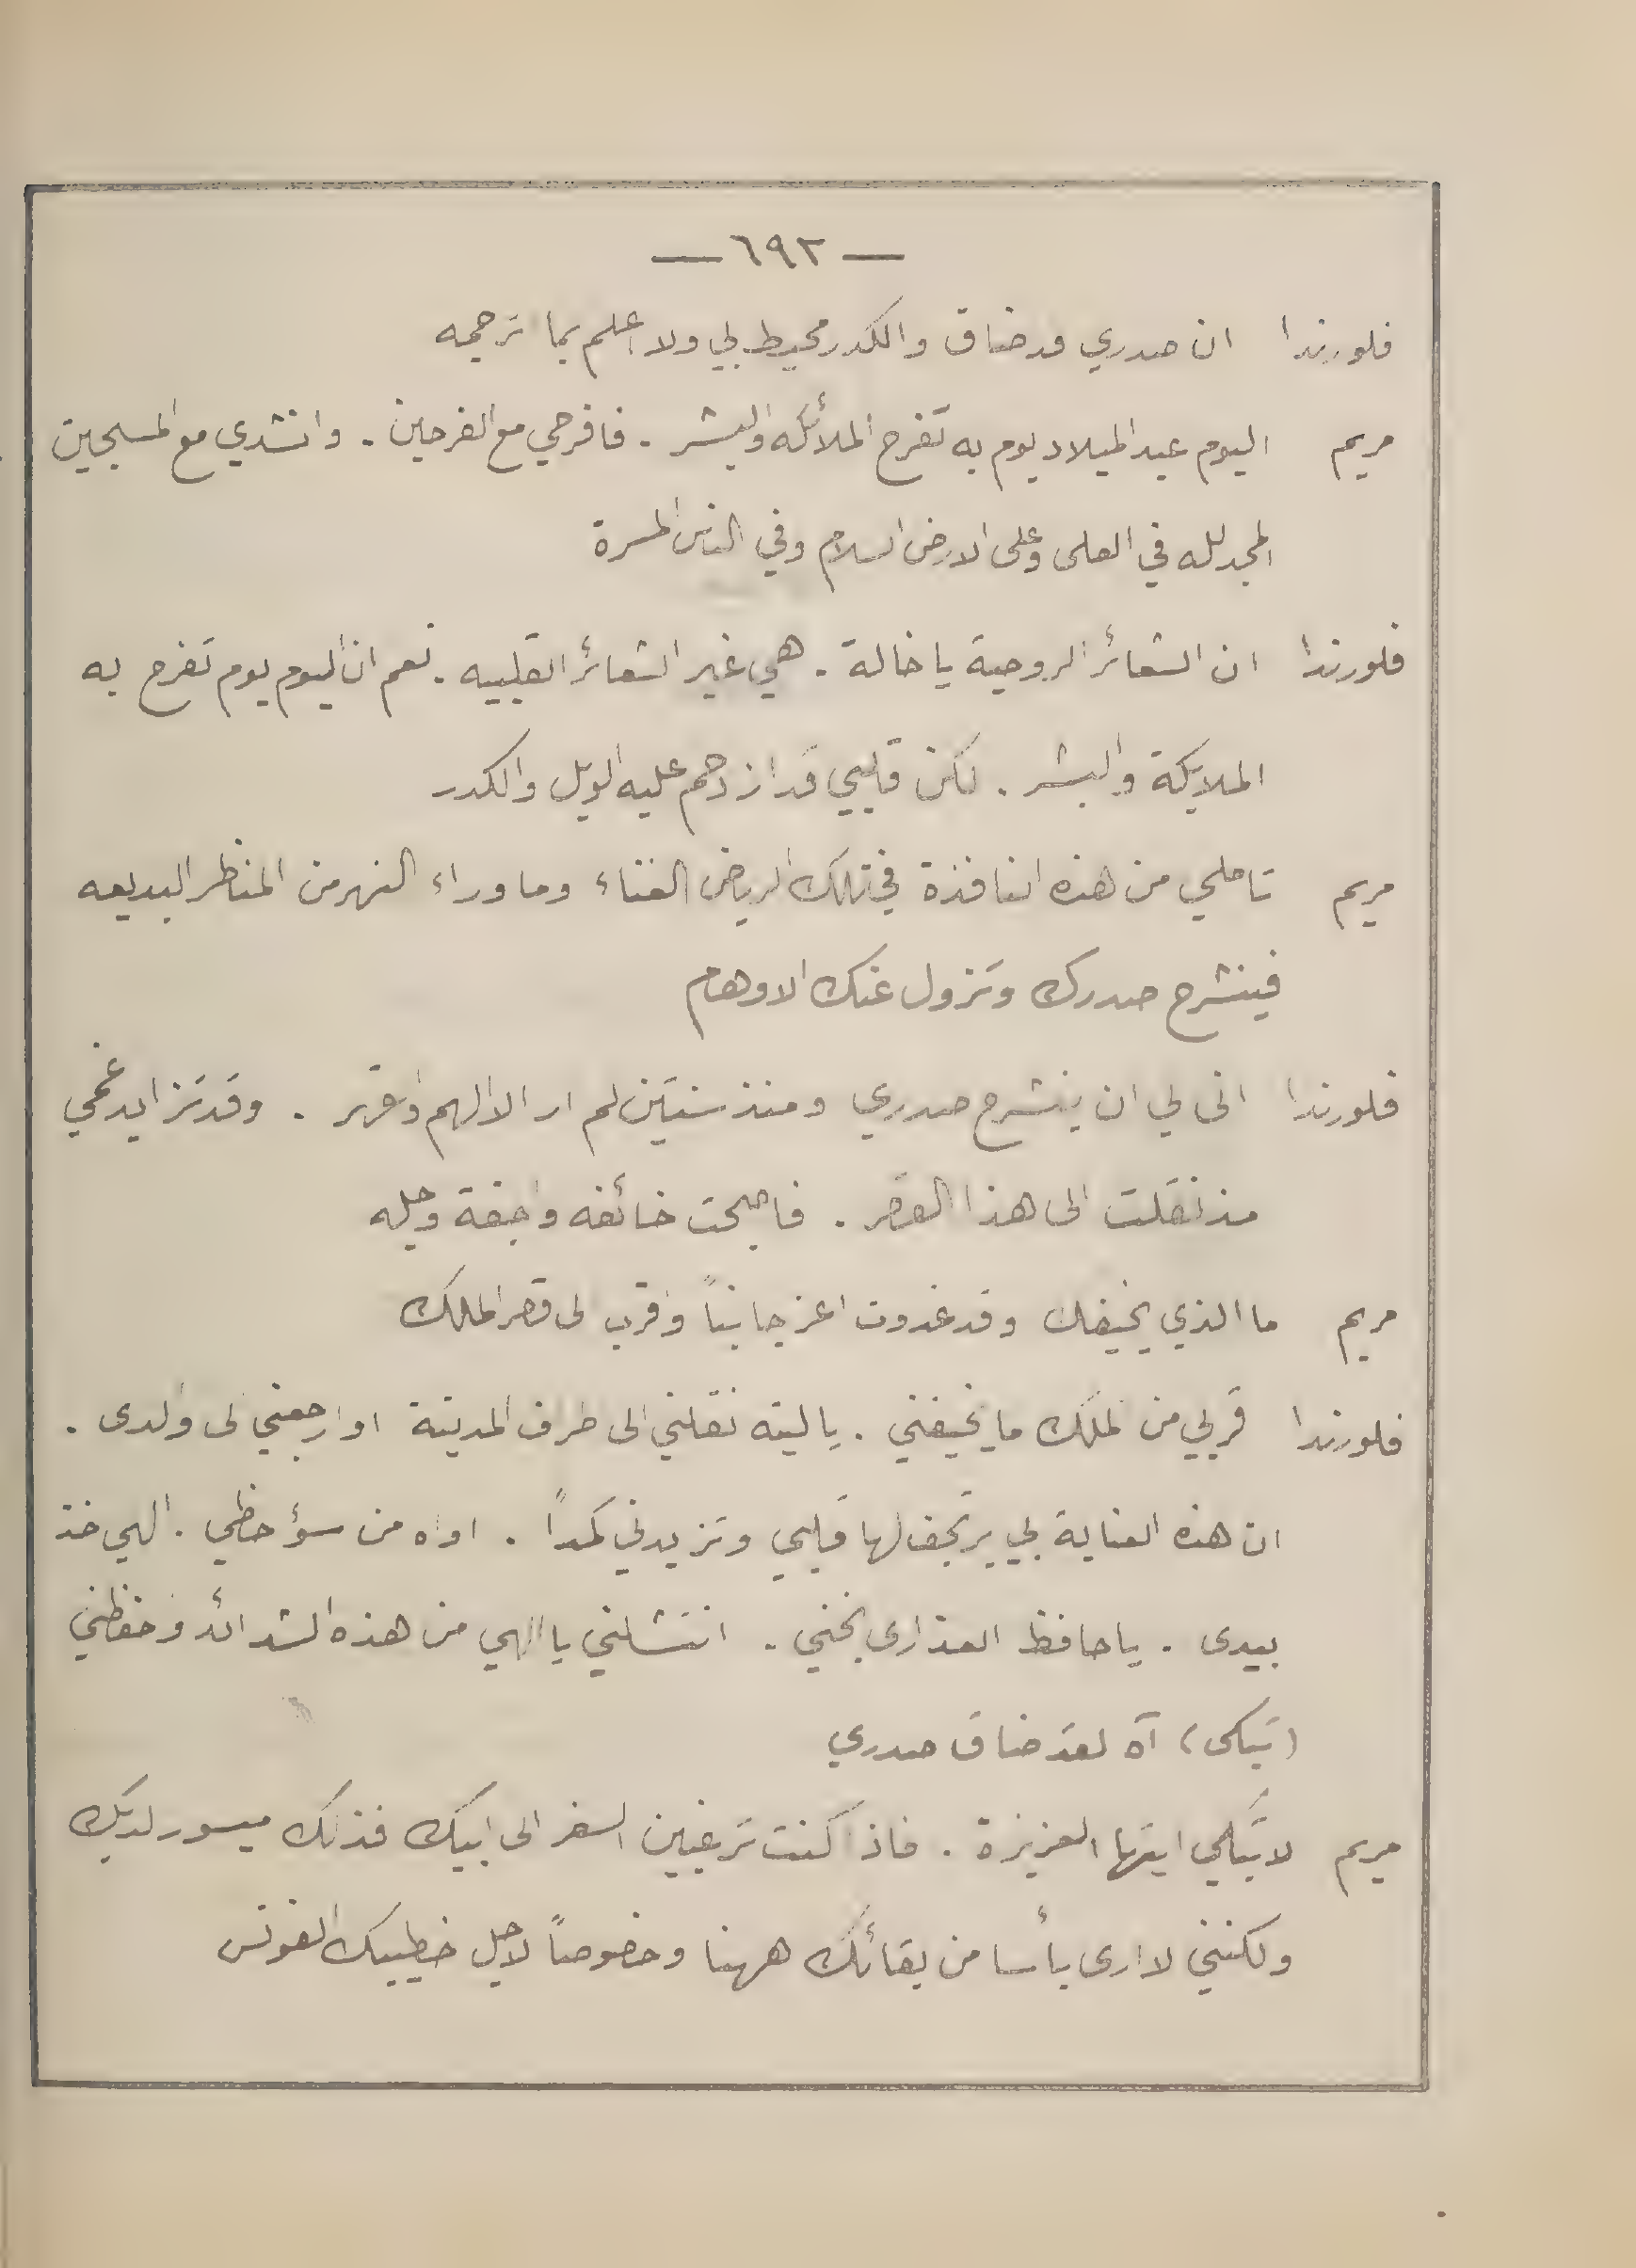 — ٦٩٢ —
فلورندا ان صدري قد ضاق والكدر محيط بي ولا اعلم بما ترجمه
مريم اليوم عيد الميلاد يوم به تفرح الملائكه والبشر . فافرحي مع الفرحين . وانشدي مع المسيحيين
المجد لله في العلى وعلى الارض السلام وفي الناس المسرة
فلورندا ان الشعائر الروحية يا خالة . هي غير الشعائر القلبيه . نعم ان اليوم يوم تفرح به
الملايكة والبشر . لكن قلبي قد ازدحم عليه الويل والكدر
مريم تاملي من هذه النافذة في تلك الرياض الغناء وما وراء النهر من المناظر البديعه
فينشرح صدرك وتزول عنك الاوهام
فلورندا انى لي ان ينشرح صدري ومنذ سنتين لم ار الا الهم والقهر . وقد تزايد غمي
مذ نقلت الى هذا القصر . فاصبحت خائفه واجفة وجله
مريم ما الذي يخيفك وقد غدوت اعز جانباً واقرب الى قصر الملك
فلورندا قربي من الملك ما يخيفني . يا ليته نقلني الى طرف المدينة او ارجعني الى والدى .
ان هذه العناية بي يرتجف لها قلبي وتزيدني كمداً . اواه من سؤ حظي . الهي خذ
بيدى . يا حافظ العذارى نجني . انتشلني يا الهي من هذه الشدائد واحفظني
(تبكى) آه لقد ضاق صدري
مريم لا تبكي ايتها العزيزة . فاذا كنت ترغبين السفر الى ابيك فذلك ميسور لديك
ولكنني لا ارى بأسا من بقائك ههنا وخصوصاً لاجل خطيبك الفونس